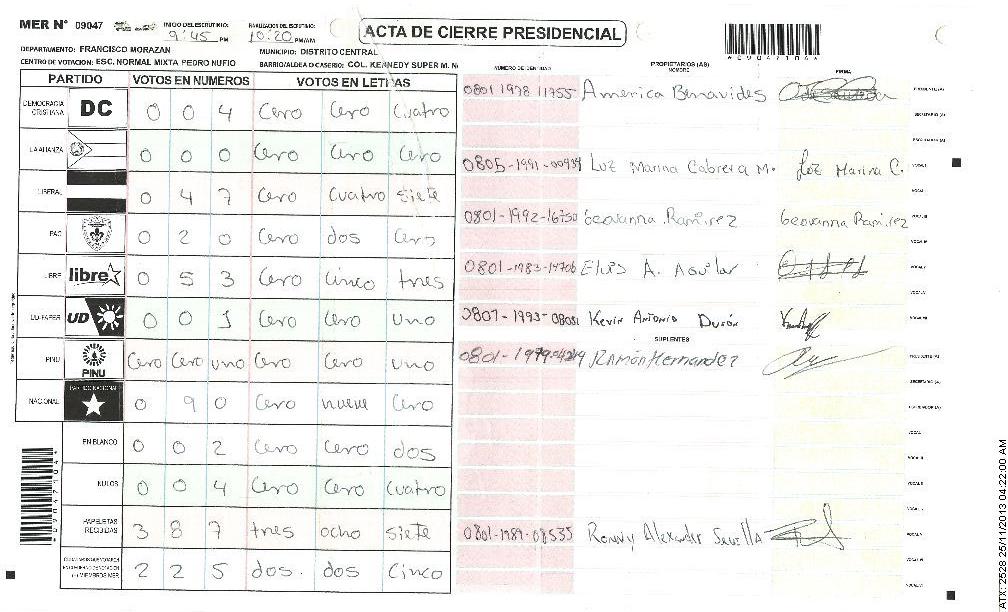 MER N° 09047 INICIO DEL ESCRUTINIO: 9:45 PM FINALIZACION DEL ESCRUTINIO: 10:20 PM/AM ACTA DE CIERRE PRESIDENCIAL
DEPARTAMENTO: FRANCISCO MORAZAN MUNICIPIO: DISTRITO CENTRAL
CENTRO DE VOTACION: ESC. NORMAL MIXTA PEDRO NUFIO BARRIO/ALDEA O CASERIO: COL. KENNEDY SUPER M. N
PARTIDO VOTOS EN NUMEROS VOTOS EN LETRAS
DEMOCRACIA CRISTIANA DC 0 0 4 Cero Cero Cuatro
LA ALIANZA 0 0 0 Cero Cero Cero
LIBERAL 0 4 7 Cero Cuatro Siete
PAC 0 2 0 Cero dos Cero
LIBRE libre 0 5 3 Cero Cinco tres
UD-FAPER UD 0 0 1 Cero Cero uno
PINU PINU Cero Cero uno Cero Cero uno
NACIONAL PARTIDO NACIONAL 0 9 0 Cero nueve Cero
EN BLANCO 0 0 2 Cero Cero dos
NULOS 0 0 4 Cero Cero Cuatro
PAPELETAS RECIBIDAS 3 8 7 tres ocho siete
2 2 5 dos. dos Cinco
NUMERO DE IDENTIDAD PROPIETARIOS (AS) NOMBRE FIRMA
0801 1978 11755 America Benavides
0805-1991-00939 Luz Marina Cabrera M. Luz Marina C.
0801-1992-16750 Geovanna Ramirez Geovanna Ramirez
0801-1983-14706 Elvis A. Aguilar
0807-1993-08051 Kevin Antonio Durón
SUPLENTES
0801-1979-04219 Ramón Hernandez
0801-1989-08535 Ronny Alexander Sevilla
ATX: 2528 25/11/2013 04:22:00 AM